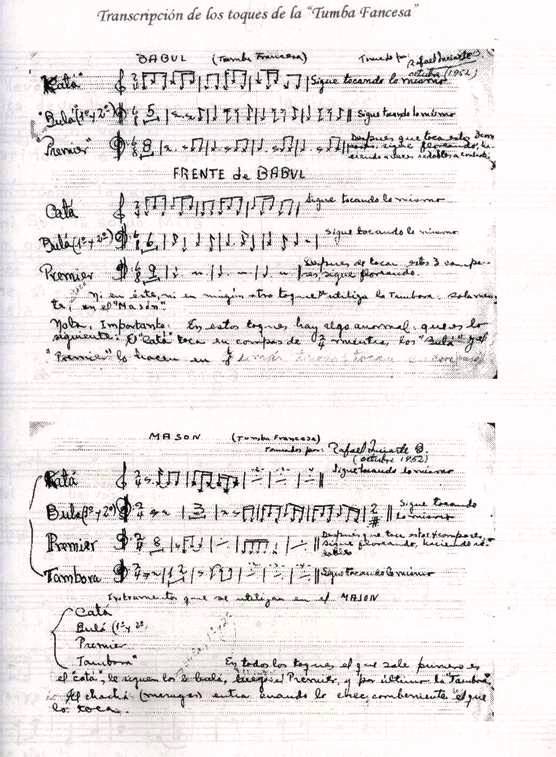 Transcripción de los toques de la "Tumba Fancesa"
BABUL (Tumba Francesa) Tomado por: Rafael Inciarte B.
octubre (1952)
"Catá" Sigue tocando lo mismo
"Bulá" (1º y 2º) Sigue tocando lo mismo
"Premier" Despues que toca estos
sigue floreando, ha-
ciendo a veces redobles
FRENTE de BABUL
Catá Sigue tocando lo mismo
Bulá (1º y 2º) Sigue tocando lo mismo
Premier Despues de tocar estos 3 compa-
ses, sigue floreando.
Ni en éste, ni en ningún otro toque utiliza la Tambora. Solamen-
te, en el "Masón".
Nota, Importante: En estos toques hay algo anormal: que es lo
siguiente: El "Catá" toca en compas de 2/4 mientras los "Bulá" y el
"Premier" lo hacen en
MASON (Tumba Francesa)
Tomado por: Rafael Inciarte B.
(octubre 1952)
Catá Sigue tocando lo mismo
Bulá (1º y 2º) Sigue tocando
lo mismo
Premier Despues que toca estos 4 compases,
sigue floreando, haciendo
Tambora Sigue tocando lo mismo
Instrumentos que se utilizan en el MASON
Catá
Bulá (1º y 2º)
Premier
Tambora
En todos los toques el que sale primero es
el "catá", le siguen los 2 bulá, luego el Premier, y por último la "Tambora".
El chachá (menuger) entra cuando lo cree combeniente el que
lo toca.